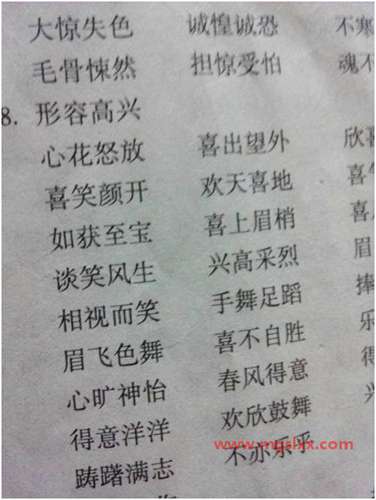 大惊失色 诚惶诚恐 不寒
毛骨悚然 担惊受怕 魂不
8. 形容高兴
心花怒放 喜出望外 欣
喜笑颜开 欢天喜地 喜
如获至宝 喜上眉梢 喜
谈笑风生 兴高采烈 眉
相视而笑 手舞足蹈 捧
眉飞色舞 喜不自胜 乐
心旷神怡 春风得意 得
得意洋洋 欢欣鼓舞
踌躇满志 不亦乐乎